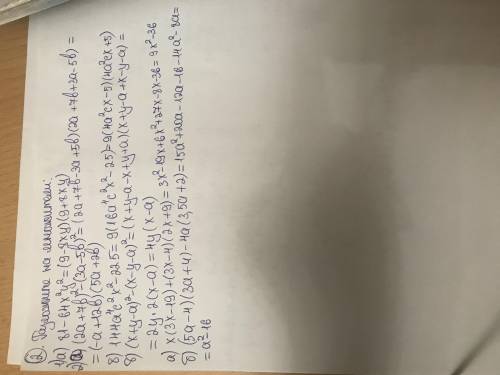 ②. Разложите на множители:
1) а) 81-64x²y²=(9-8xy)(9+8xy)
2) а) (2a+7b)²-(3a-5b)²=(2a+7b-3a+5b)(2a+7b+3a-5b)=
=(-a+12b)(5a+2b)
б) 144a⁴c²x²-225=9(16a⁴c²x²-25)=9(4a²cx-5)(4a²cx+5)
б) (x+y-a)²-(x-y-a)²=(x+y-a-x+y+a)(x+y-a+x-y-a)=
=2y·2(x-a)=4y(x-a)
а) x(3x-19)+(3x-4)(2x+9)=3x²-19x+6x²+27x-8x-36=9x²-36
б) (5a-4)(3a+4)-4a(3,5a+2)=15a²+20a-12a-16-14a²-8a=
=a²-16